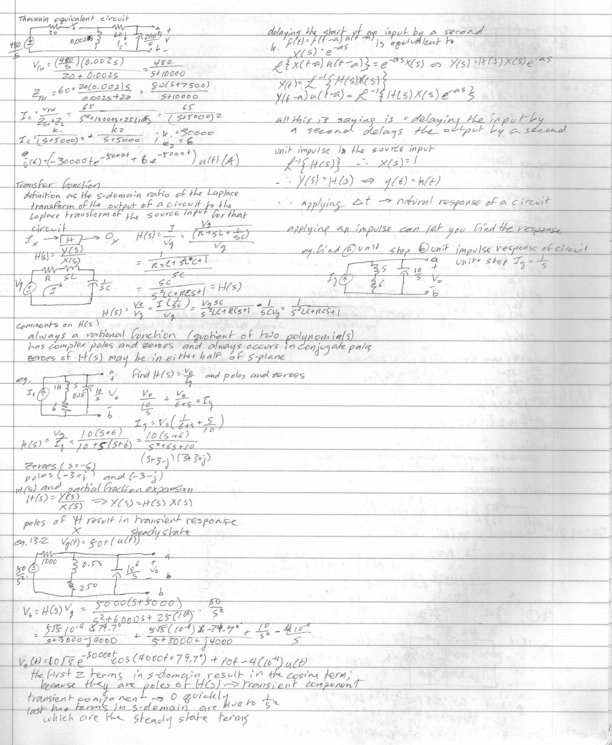 Thevenin equivalent circuit
20
0.002s
60
a
b
480/s
V_TH = (480/s)(0.002s) / 20+0.002s = 480 / s+10000
Z_TH = 60 + 20(0.002s) / 0.002s+20 = 80(s+7500) / s+10000
(s+5000)²
k₁ = -30000
k₂ = 6
i_c(t) = (-30000te^-5000t + 6e^-5000t) u(t) (A)
Transfer function
definition as the s-domain ratio of the Laplace
transform of the output of a circuit to the
Laplace transform of the source input for that
circuit
H(s) = Y(s)/X(s)
R sL 1/sC
= sC / s²LC+RCs+1 = H(s)
comments on H(s)
always a rational function (quotient of two polynomials)
has complex poles and zeroes and always occurs in conjugate pairs
zeroes of H(s) may be in either half of s-plane
eg. find H(s) = V₀/Ig and poles and zeroes
V₀/(10/s) + V₀/(6+s) = Ig
Ig = V₀(1/(6+s) + s/10)
H(s) = V₀/Ig = 10(s+6) / 10+s(s+6) = 10(s+6) / s²+6s+10
(s+3-j)(s+3+j)
zeroes (s=-6)
poles (-3+j) and (-3-j)
H(s) and partial fraction expansion
H(s) = Y(s)/X(s) => Y(s) = H(s) X(s)
poles of H result in transient response
X steady state
eg. 13.2 Vg(t) = 50t(u(t))
1000
0.5s
250
10⁶/s
a
b
V₀ = H(s)Vg = 5000(s+5000) / s²+6000s+25(10⁶) · 50/s²
V₀(t) = 10√5 e^-3000t cos(4000t+79.7°) + 10t - 4(10⁻⁴) u(t)
the first 2 terms in s-domain result in the cosine term,
because they are poles of H(s) → transient component
transient component → 0 quickly
last two terms in s-domain are due to 1/s²
which are the steady state terms
delaying the start of an input by a second
is equivalent to
X(s)·e^-as
L{x(t-a)u(t-a)} = e^-as X(s) => Y(s) = H(s)X(s)e^-as
y(t) = L⁻¹{H(s)X(s)}
y(t-a)u(t-a) = L⁻¹{H(s)X(s)e^-as}
all this is saying is · delaying the input by
a second delays the output by a second
unit impulse is the source input
L⁻¹{H(s)} ∴ X(s)=1
∴ Y(s) = H(s) => y(t) = h(t)
∴ applying Δt → natural response of a circuit
applying an impulse can let you find the response
eg. find ⓐ unit step ⓑ unit impulse response of circuit
unit step Ig = 1/s